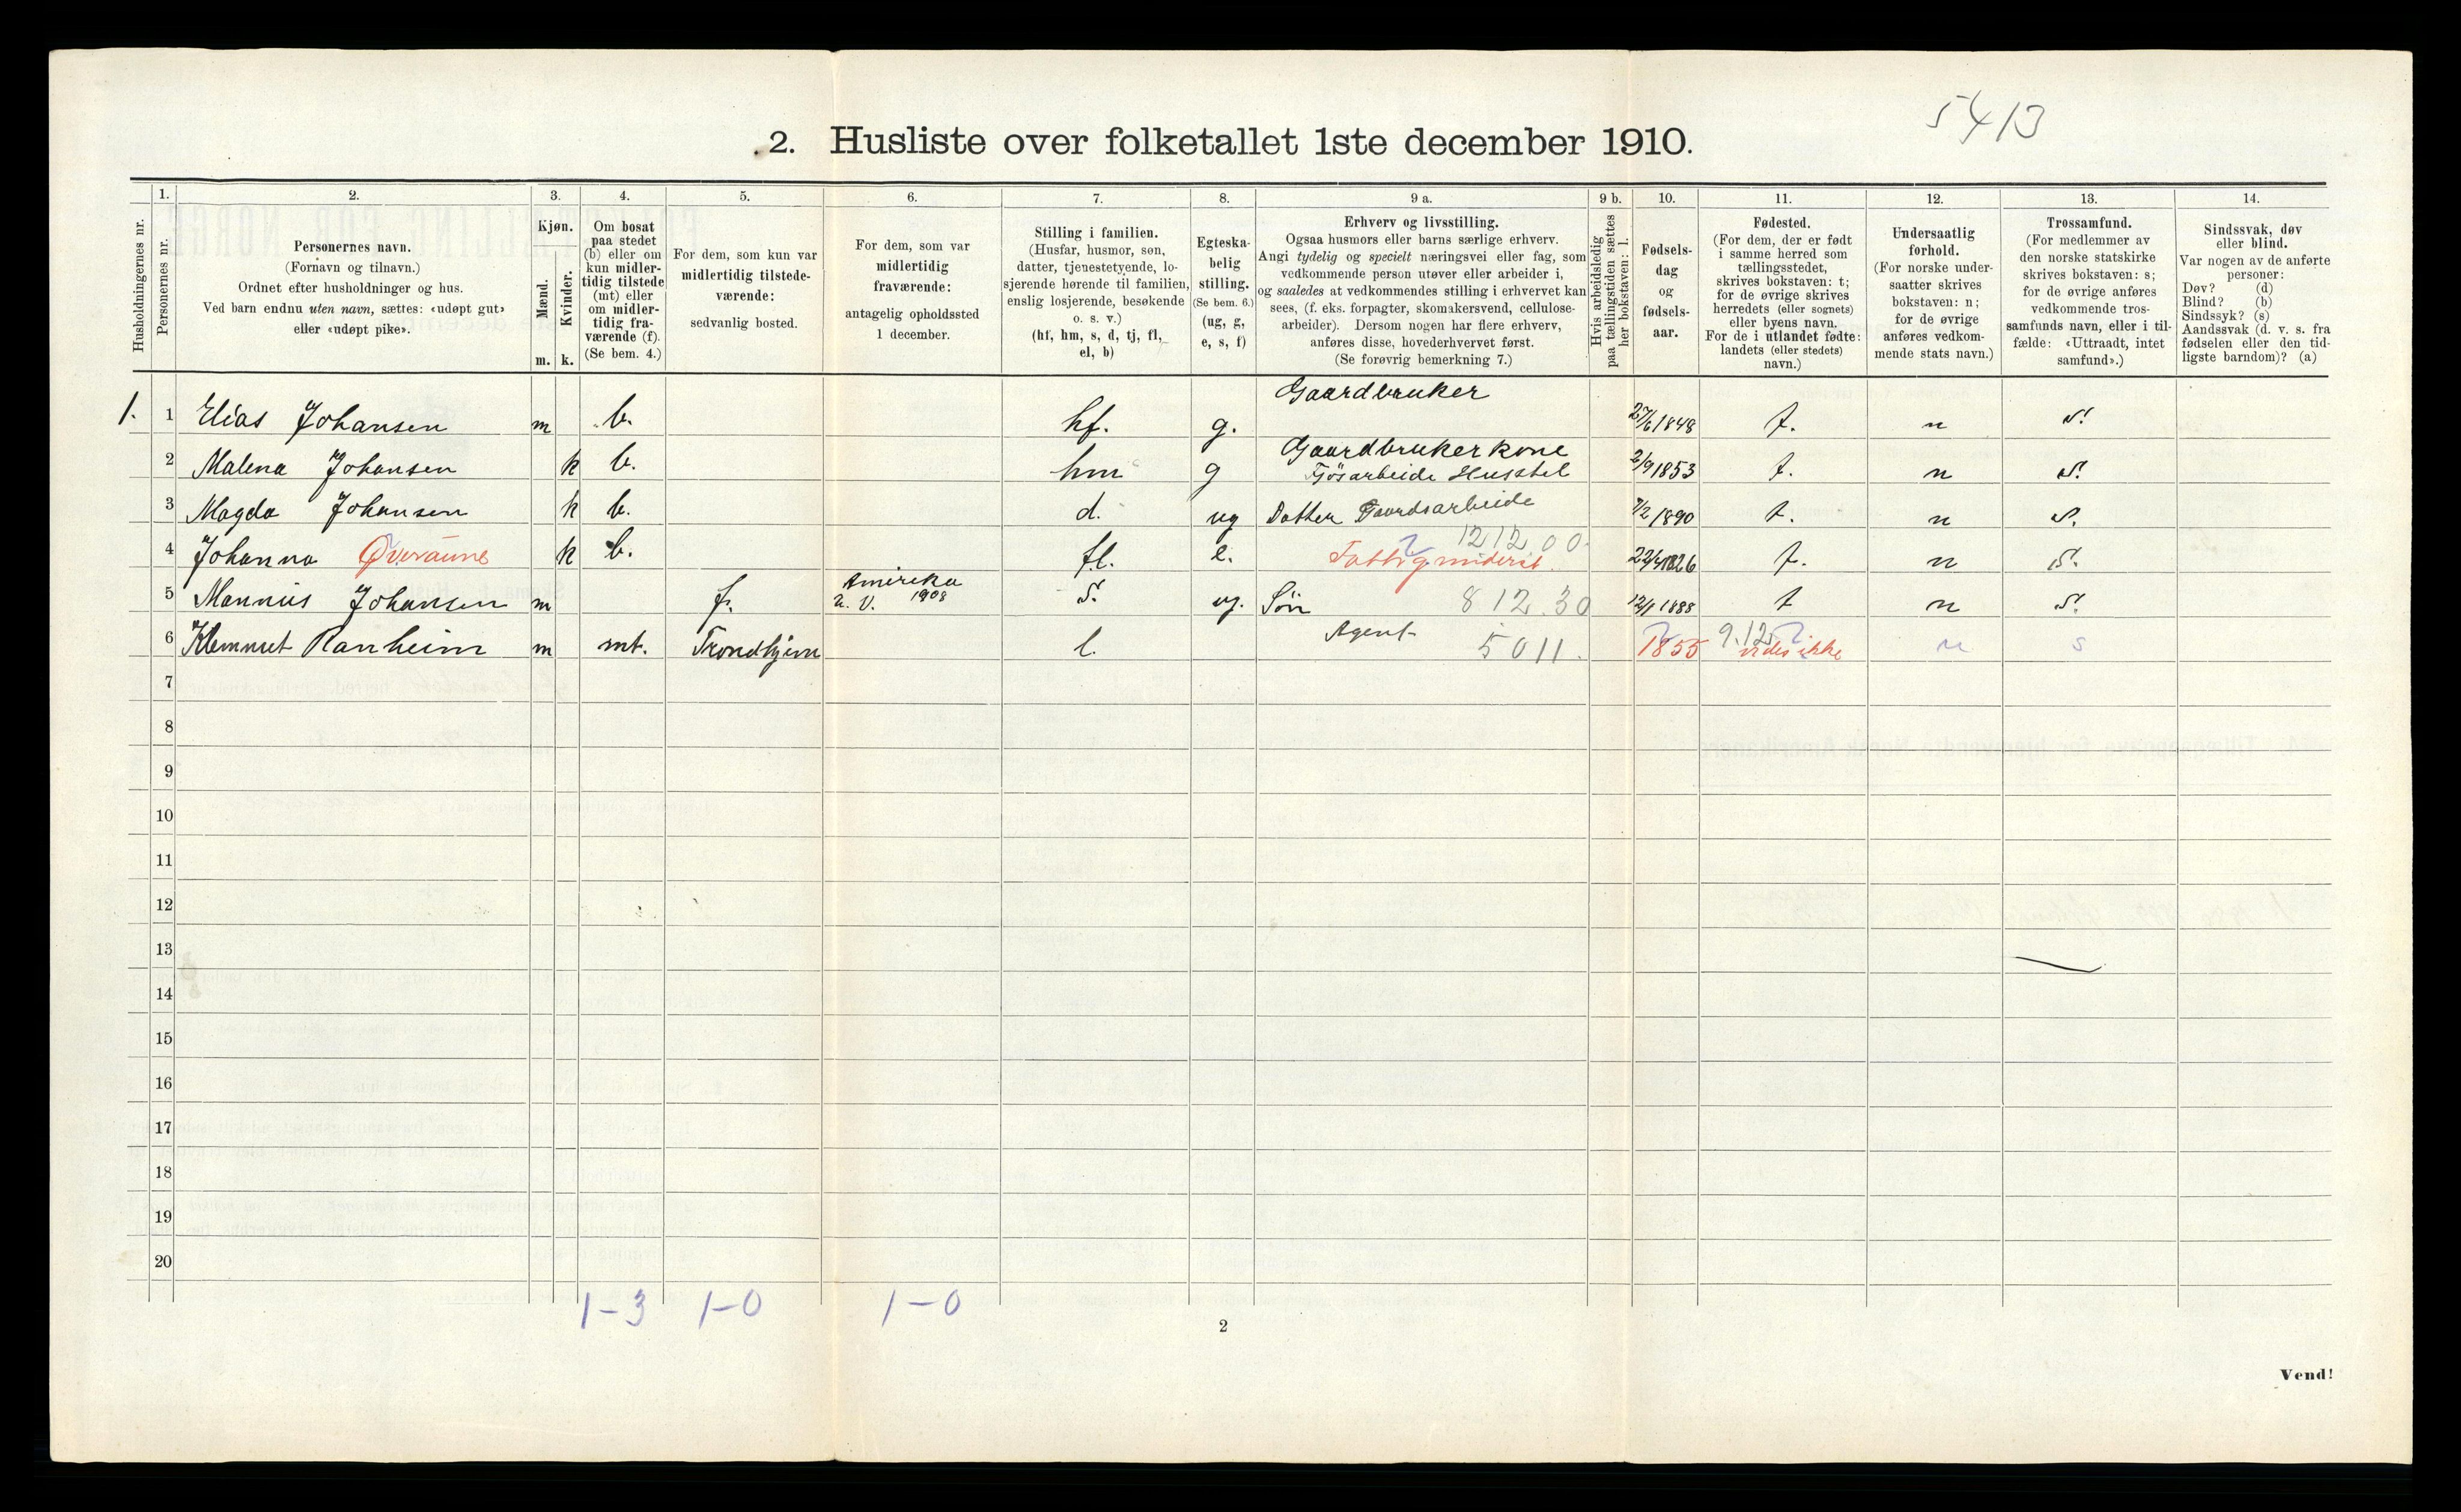 5413
2. Husliste over folketallet 1ste december 1910.
Husholdningernes nr.
1.
Personernes nr.
2.
Personernes navn.
(Fornavn og tilnavn.)
Ordnet efter husholdninger og hus.
Ved barn endnu uten navn, sættes: «udøpt gut»
eller «udøpt pike».
3.
Kjøn.
Mænd.
Kvinder.
m. k.
4.
Om bosat
paa stedet
(b) eller om
kun midler-
tidig tilstede
(mt) eller
om midler-
tidig fra-
værende (f).
(Se bem. 4.)
5.
For dem, som kun var
midlertidig tilstede-
værende:
sedvanlig bosted.
6.
For dem, som var
midlertidig
fraværende:
antagelig opholdssted
1 december.
7.
Stilling i familien.
(Husfar, husmor, søn,
datter, tjenestetyende, lo-
sjerende hørende til familien,
enslig losjerende, besøkende
o. s. v.)
(hf, hm, s, d, tj, fl,
el, b)
8.
Egteska-
belig
stilling.
(Se bem. 6.)
(ug, g,
e, s, f)
9 a.
Erhverv og livsstilling.
Ogsaa husmors eller barns særlige erhverv.
Angi tydelig og specielt næringsvei eller fag, som
vedkommende person utøver eller arbeider i,
og saaledes at vedkommendes stilling i erhvervet kan
sees, (f. eks. forpagter, skomakersvend, cellulose-
arbeider). Dersom nogen har flere erhverv,
anføres disse, hovederhvervet først.
(Se forøvrig bemerkning 7.)
9 b.
Hvis arbeidsledig
paa tællingstiden sættes
her bokstaven: l.
10.
Fødsels-
dag
og
fødsels-
aar.
11.
Fødested.
(For dem, der er født
i samme herred som
tællingsstedet,
skrives bokstaven: t;
for de øvrige skrives
herredets (eller sognets)
eller byens navn.
For de i utlandet fødte:
landets (eller stedets)
navn.)
12.
Undersaatlig
forhold.
(For norske under-
saatter skrives
bokstaven: n;
for de øvrige
anføres vedkom-
mende stats navn.)
13.
Trossamfund.
(For medlemmer av
den norske statskirke
skrives bokstaven: s;
for de øvrige anføres
vedkommende tros-
samfunds navn, eller i til-
fælde: «Uttraadt, intet
samfund».)
14.
Sindssvak, døv
eller blind.
Var nogen av de anførte
personer:
Døv? (d)
Blind? (b)
Sindssyk? (s)
Aandssvak (d. v. s. fra
fødselen eller den tid-
ligste barndom)? (a)
Gaardbruker
1. 1 Elias Johansen m b. hf. g. 27/6 1848 t. n s.
Gaardbrukerkone
2 Malena Johansen k b. hm g Fjøsarbeide Husstel 2/9 1853 t. n s.
3 Magda Johansen k b. d. ug Datter Gaardsarbeide 7/2 1890 t. n s.
1212 00
4 Johanna Øveraune k b. fl. e. 22/4 1826 t. n s.
Amireka
5 Mannus Johansen m f. U. V. 1908 s. ug. Søn 8 12 30 12/1 1888 t n s.
9.12
6 Klemmet Ranheim m mt. Trondhjem l. Agent 5011. 1855 vides ikke n s
7
8
9
10
11
12
13
14
15
16
17
18
19
20
1-3 1-0 1-0
2
Vend!